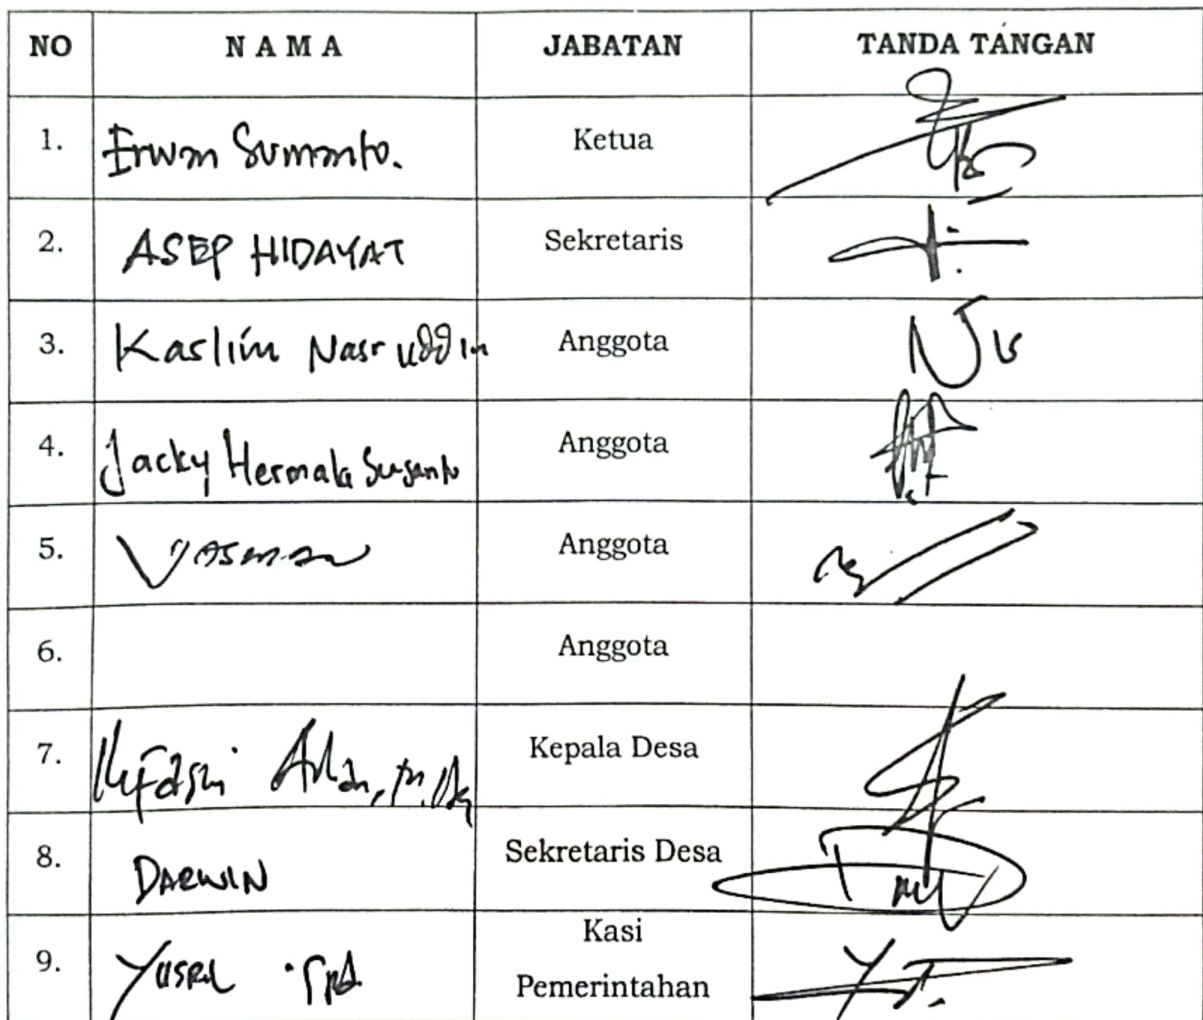 NO NAMA JABATAN TANDA TANGAN
1. Erwan Sumanto. Ketua
2. ASEP HIDAYAT Sekretaris
3. Kaslim Nasruddin Anggota
4. Jacky Hermala Susanto Anggota
5. Anggota
6. Anggota
7. Kepala Desa
8. DARWIN Sekretaris Desa
9. YUSRIL .Spd. Kasi
Pemerintahan